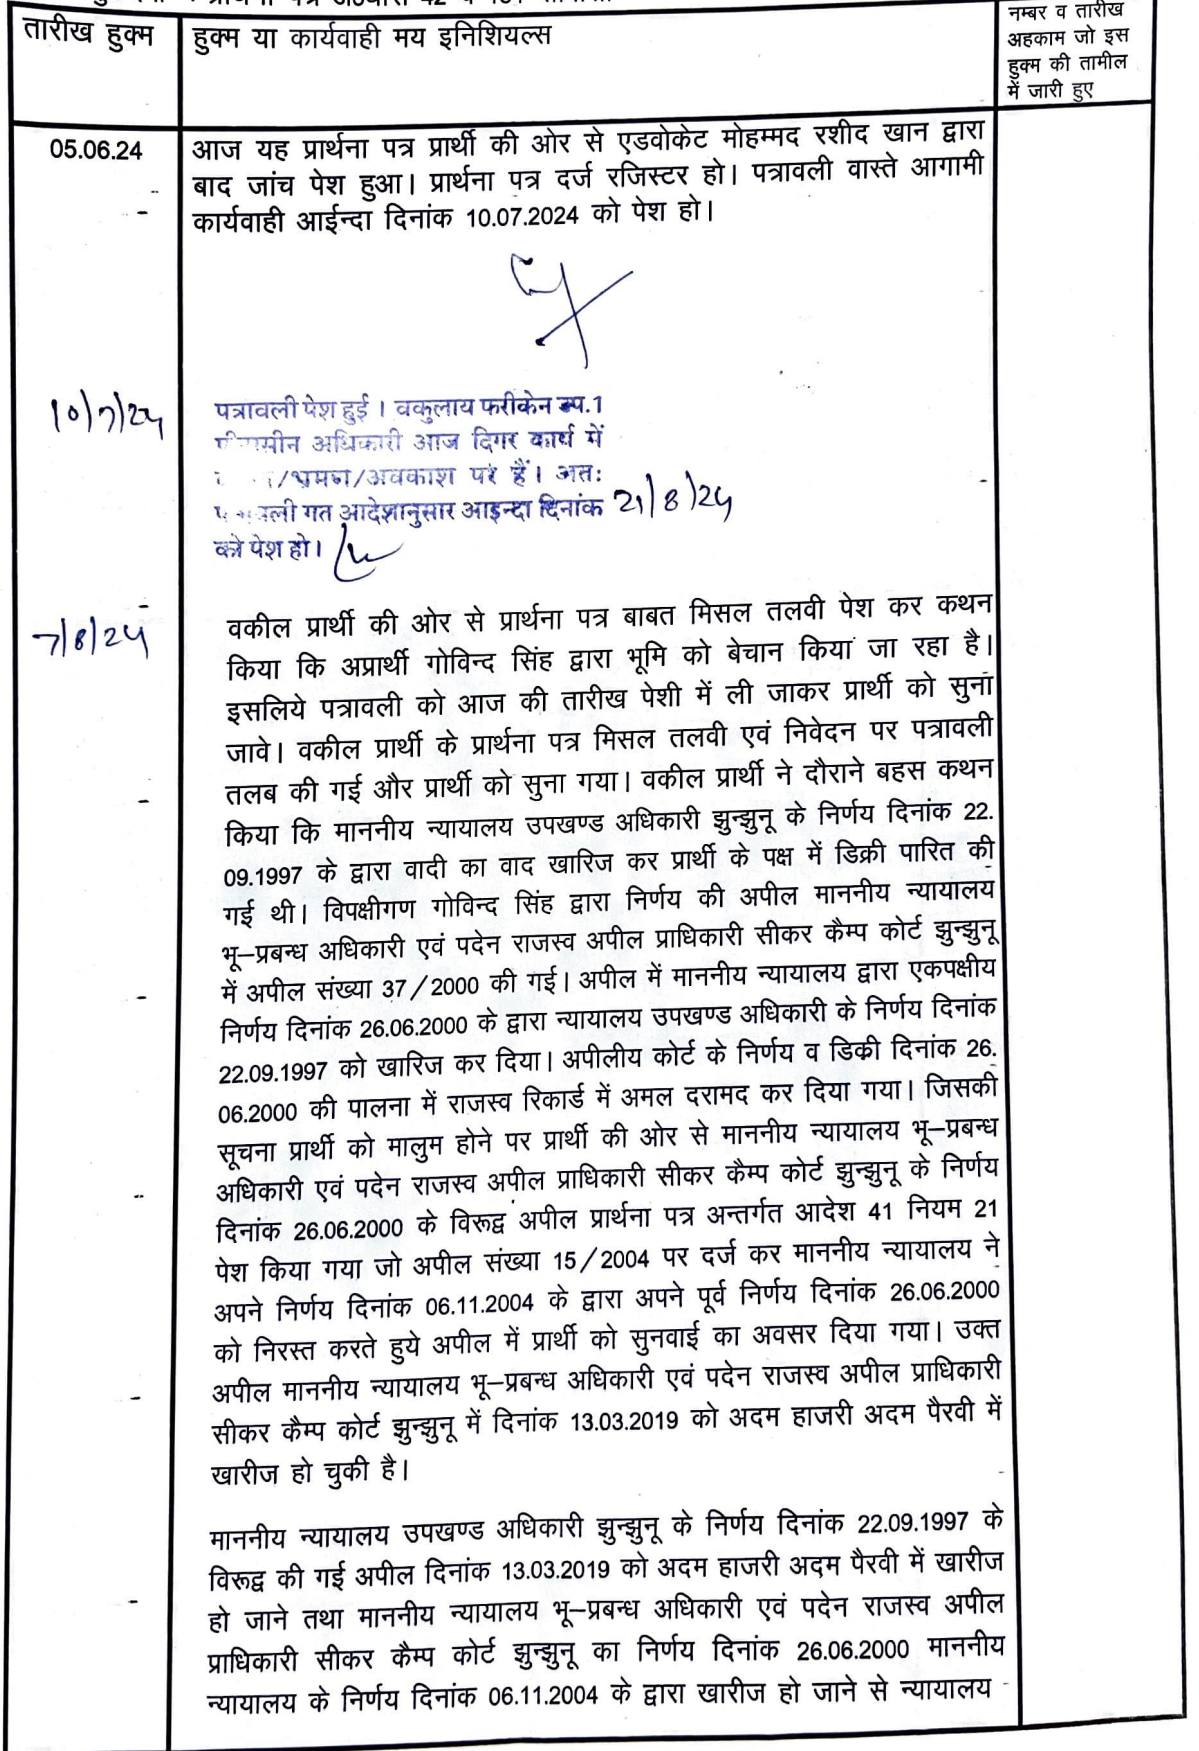 तारीख हुक्म
हुक्म या कार्यवाही मय इनिशियल्स
नम्बर व तारीख
अहकाम जो इस
हुक्म की तामील
में जारी हुए
05.06.24
आज यह प्रार्थना पत्र प्रार्थी की ओर से एडवोकेट मोहम्मद रशीद खान द्वारा
बाद जांच पेश हुआ। प्रार्थना पत्र दर्ज रजिस्टर हो। पत्रावली वास्ते आगामी
कार्यवाही आईन्दा दिनांक 10.07.2024 को पेश हो।
10/7/24
पत्रावली पेश हुई। वकुलाय फरीकेन उप.1
अधिकारी आज दिगर कार्य में
/भ्रमण/अवकाश पर हैं। अतः
गत आदेशानुसार आइन्दा दिनांक 21/8/24
को पेश हो।
7/8/24
वकील प्रार्थी की ओर से प्रार्थना पत्र बाबत मिसल तलवी पेश कर कथन
किया कि अप्रार्थी गोविन्द सिंह द्वारा भूमि को बेचान किया जा रहा है।
इसलिये पत्रावली को आज की तारीख पेशी में ली जाकर प्रार्थी को सुना
जावे। वकील प्रार्थी के प्रार्थना पत्र मिसल तलवी एवं निवेदन पर पत्रावली
तलब की गई और प्रार्थी को सुना गया। वकील प्रार्थी ने दौराने बहस कथन
किया कि माननीय न्यायालय उपखण्ड अधिकारी झुन्झुनू के निर्णय दिनांक 22.
09.1997 के द्वारा वादी का वाद खारिज कर प्रार्थी के पक्ष में डिक्री पारित की
गई थी। विपक्षीगण गोविन्द सिंह द्वारा निर्णय की अपील माननीय न्यायालय
भू–प्रबन्ध अधिकारी एवं पदेन राजस्व अपील प्राधिकारी सीकर कैम्प कोर्ट झुन्झुनू
में अपील संख्या 37/2000 की गई। अपील में माननीय न्यायालय द्वारा एकपक्षीय
निर्णय दिनांक 26.06.2000 के द्वारा न्यायालय उपखण्ड अधिकारी के निर्णय दिनांक
22.09.1997 को खारिज कर दिया। अपीलीय कोर्ट के निर्णय व डिक्री दिनांक 26.
06.2000 की पालना में राजस्व रिकार्ड में अमल दरामद कर दिया गया। जिसकी
सूचना प्रार्थी को मालुम होने पर प्रार्थी की ओर से माननीय न्यायालय भू–प्रबन्ध
अधिकारी एवं पदेन राजस्व अपील प्राधिकारी सीकर कैम्प कोर्ट झुन्झुनू के निर्णय
दिनांक 26.06.2000 के विरूद्व अपील प्रार्थना पत्र अन्तर्गत आदेश 41 नियम 21
पेश किया गया जो अपील संख्या 15/2004 पर दर्ज कर माननीय न्यायालय ने
अपने निर्णय दिनांक 06.11.2004 के द्वारा अपने पूर्व निर्णय दिनांक 26.06.2000
को निरस्त करते हुये अपील में प्रार्थी को सुनवाई का अवसर दिया गया। उक्त
अपील माननीय न्यायालय भू–प्रबन्ध अधिकारी एवं पदेन राजस्व अपील प्राधिकारी
सीकर कैम्प कोर्ट झुन्झुनू में दिनांक 13.03.2019 को अदम हाजरी अदम पैरवी में
खारीज हो चुकी है।
माननीय न्यायालय उपखण्ड अधिकारी झुन्झुनू के निर्णय दिनांक 22.09.1997 के
विरूद्व की गई अपील दिनांक 13.03.2019 को अदम हाजरी अदम पैरवी में खारीज
हो जाने तथा माननीय न्यायालय भू–प्रबन्ध अधिकारी एवं पदेन राजस्व अपील
प्राधिकारी सीकर कैम्प कोर्ट झुन्झुनू का निर्णय दिनांक 26.06.2000 माननीय
न्यायालय के निर्णय दिनांक 06.11.2004 के द्वारा खारीज हो जाने से न्यायालय